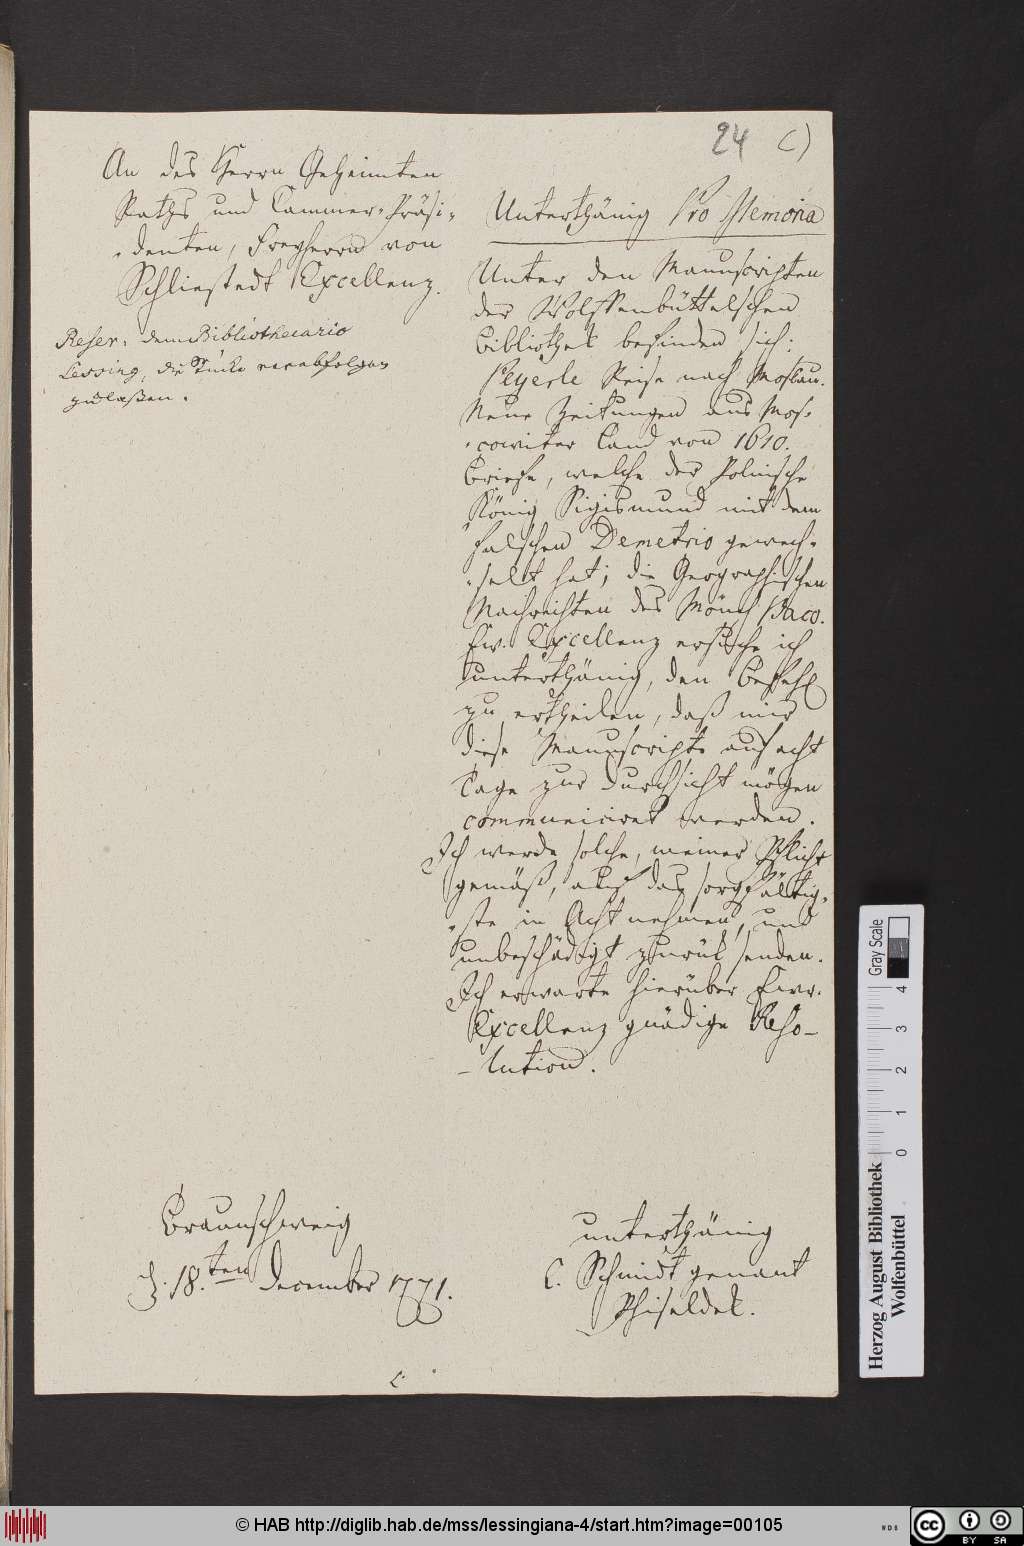 24 C)
An des Herrn Geheimten
Raths und Cammer-Präsi-
-denten, Freyherrn von
Schliestedt Excellenz.
Reser: dem Bibliothecario
Lessing, die Stücke verabfolgen
zu laßen.
Unterthänig Pro Memoria
Unter den Manuscripten
der Wolffenbüttelschen
Bibliothek befinden sich:
Peyerle Reise nach Moskau.
Neue Zeitungen aus Mos-
-cowiter Land von 1610.
Briefe, welche der Polnische
König Sigismund mit dem
falschen Demetrio gewech-
-selt hat; die Geographischen
Nachrichten des Mönch Baco.
Ew. Excellenz ersuche ich
unterthänig, den Befehl
zu ertheilen, daß mir
diese Manuscripte auf acht
Tage zur Durchsicht mögen
communiciret werden.
Ich werde solche, meiner Pflicht
gemäß, auf das sorgfältig-
-ste in Acht nehmen, und
unbeschädigt zurük senden.
Ich erwarte hierüber Ewr.
Excellenz gnädige Reso-
-lution.
Braunschweig
d. 18.ten December 1771.
unterthänig
C. Schmidt genant
Phiseldek.
Gray Scale
0 1 2 3 4
Herzog August Bibliothek
Wolfenbüttel
© HAB http://diglib.hab.de/mss/lessingiana-4/start.htm?image=00105
WDB
cc BY SA